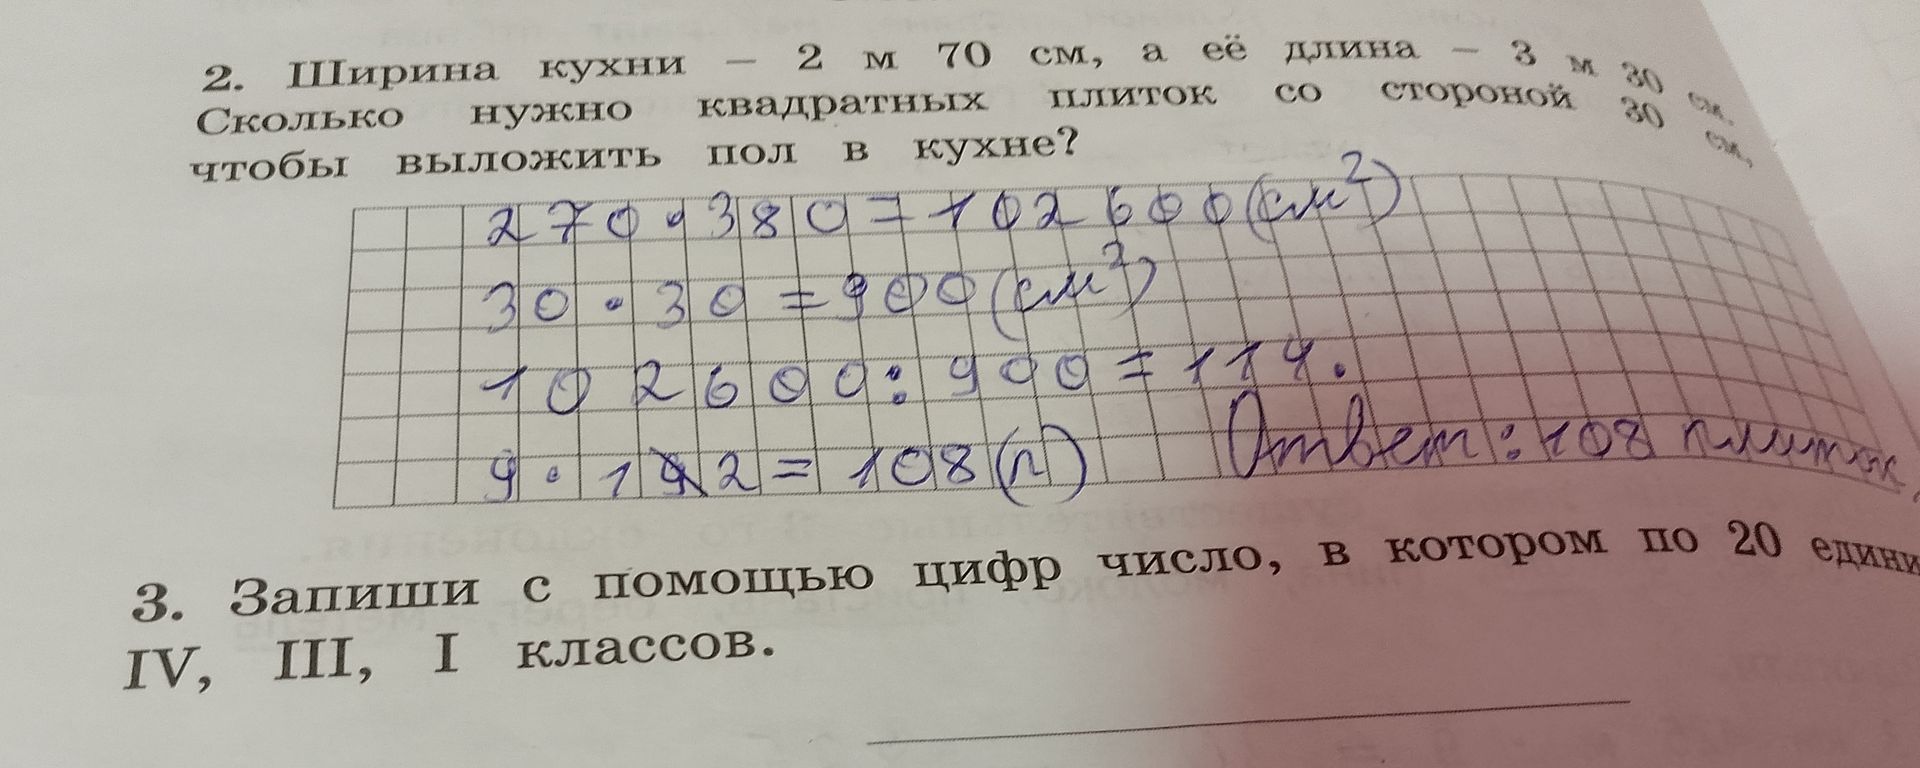 2. Ширина кухни – 2 м 70 см, а её длина – 3 м 30 см.
Сколько нужно квадратных плиток со стороной 30 см,
чтобы выложить пол в кухне?
270·380=102600(см²)
30·30=900(см²)
102600:900=114.
9·12=108(п) Ответ:108 плиток,
3. Запиши с помощью цифр число, в котором по 20 едини
IV, III, I классов.